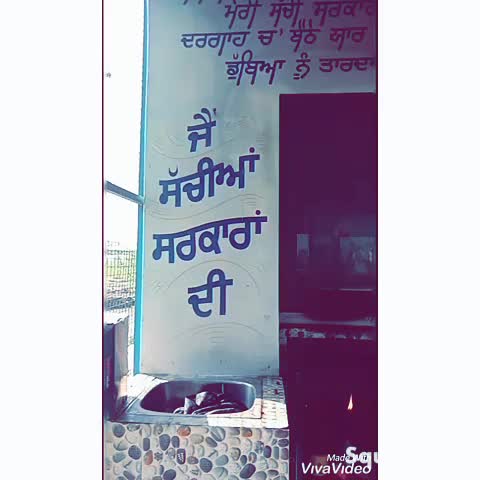 ਮੇਰੀ ਸੱਚੀ ਸਰਕਾਰ
ਦਰਗਾਹ ਚ' ਬੈਠੇ ਯਾਰ
ਡੁੱਬਿਆ ਨੂੰ ਤਾਰਦਾ
ਜੈ
ਸੱਚੀਆਂ
ਸਰਕਾਰਾਂ
ਦੀ
Made With
VivaVideo